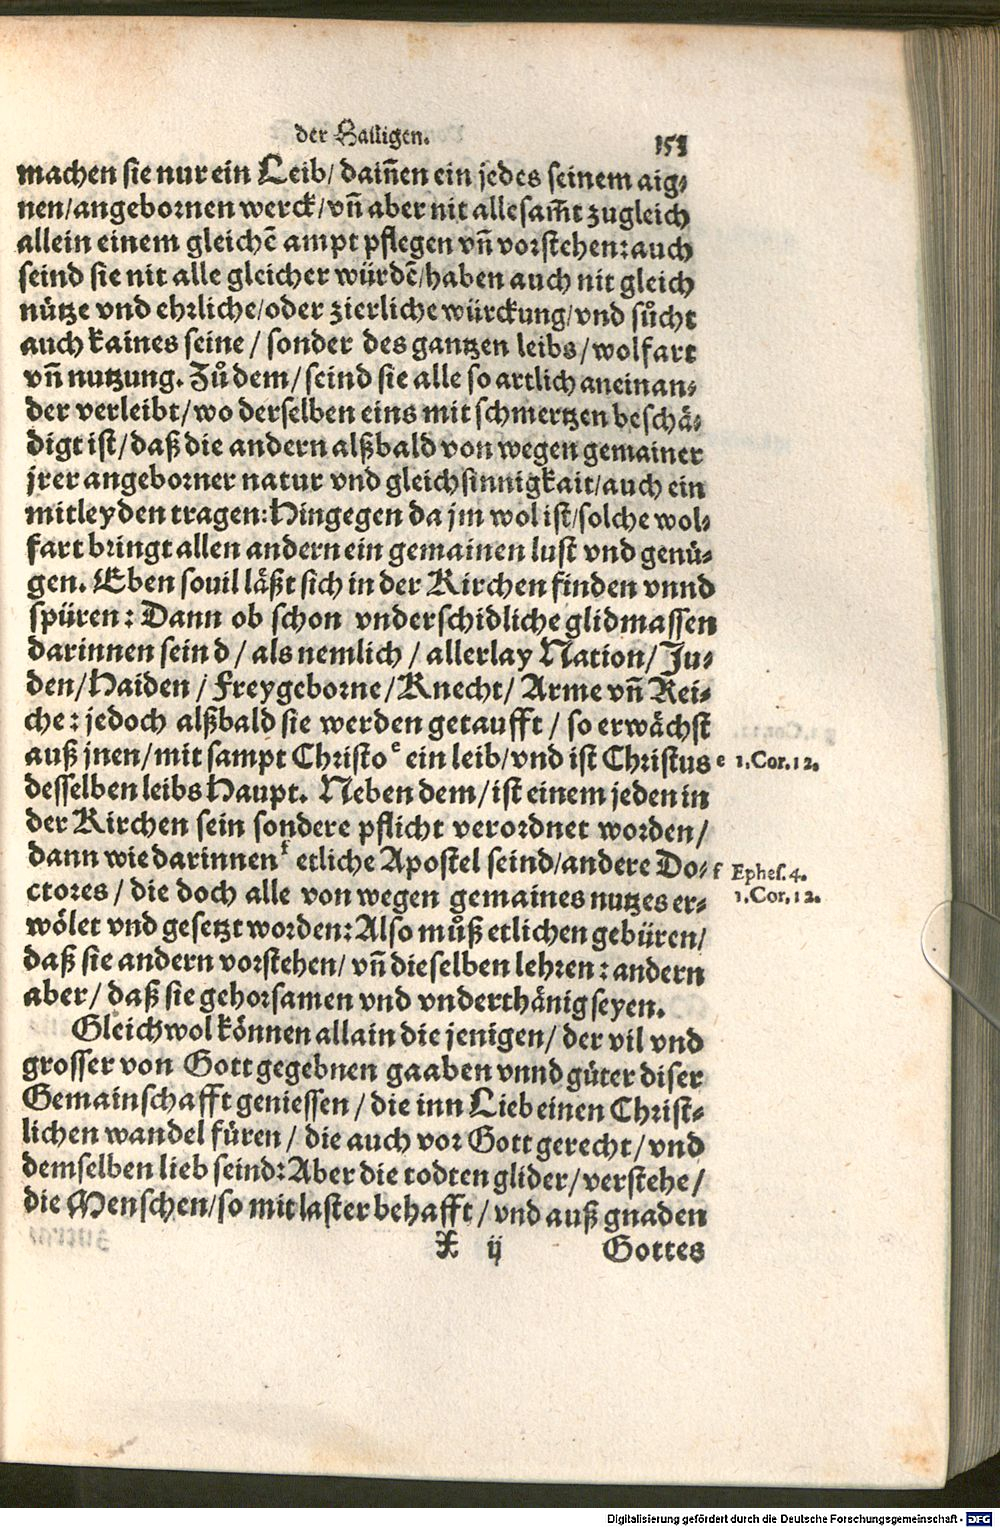 der Hailigen. 153
machen sie nur ein Leib/ dain̄en ein jedes seinem aig⸗
nen/angebornen werck/vn̄ aber nit alle sam̄t zugleich
allein einem gleichē ampt pflegen vn̄ vorstehen: auch
seind sie nit alle gleicher würdē/haben auch nit gleich
nütze vnd ehrliche/oder zierliche würckung/vnd sůcht
auch kaines seine / sonder des gantzen leibs/wolfart
vn̄ nutzung. Zů dem/ seind sie alle so artlich aneinan⸗
der verleibt/wo derselben eins mit schmertzen beschä⸗
digt ist/daß die andern alßbald von wegen gemainer
jrer angeborner natur vnd gleichsinnigkait/auch ein
mitleyden tragen: Hingegen da jm wol ist/solche wol⸗
fart bringt allen andern ein gemainen lust vnd genü⸗
gen. Eben souil läßt sich in der Kirchen finden vnnd
spüren: Dann ob schon vnderschidliche glidmassen
darinnen seind / als nemlich / allerlay Nation/ Ju⸗
den/Haiden / Freygeborne/Knecht/ Arme vn̄ Rei⸗
che: jedoch alßbald sie werden getaufft / so erwächst
auß jnen/mit sampt Christo e ein leib/vnd ist Christus e 1.Cor.12.
desselben leibs Haupt. Neben dem/ist einem jeden in
der Kirchen sein sondere pflicht verordnet worden/
dann wie darinnen f etliche Apostel seind/andere Do⸗ f Ephes.4.
ctores / die doch alle von wegen gemaines nutzes er⸗ 1.Cor.12.
wölet vnd gesetzt worden: Also můß etlichen gebüren/
daß sie andern vorstehen/ vn̄ dieselben lehren: andern
aber/ daß sie gehorsamen vnd vnderthänig seyen.
Gleichwol können allain die jenigen/ der vil vnd
grosser von Gott gegebnen gaaben vnnd güter diser
Gemainschafft geniessen / die inn Lieb einen Christ⸗
lichen wandel füren / die auch vor Gott gerecht/ vnd
demselben lieb seind: Aber die todten glider/verstehe/
die Menschen/so mit laster behafft / vnd auß gnaden
X ij Gottes
Digitalisierung gefördert durch die Deutsche Forschungsgemeinschaft - DFG